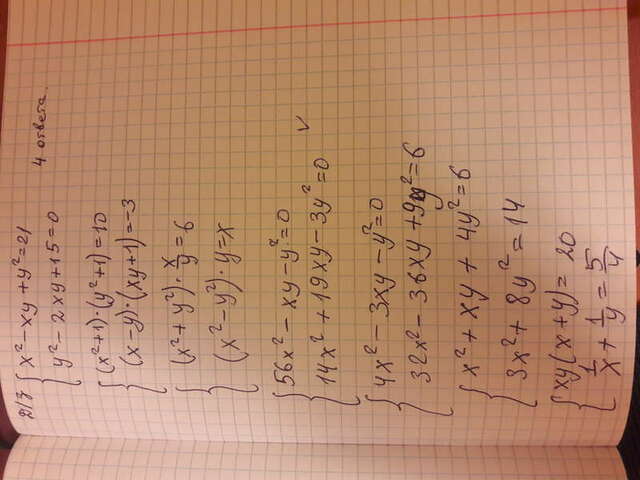 Д/З x² - xy + y² = 21
4 ответа.
y² - 2xy + 15 = 0
(x² + 1) · (y² + 1) = 10
(x - y) · (xy + 1) = -3
(x² + y²) · x/y = 6
(x² - y²) · y = x
56x² - xy - y² = 0
14x² + 19xy - 3y² = 0
4x² - 3xy - y² = 0
32x² - 36xy + 9y² = 6
x² + xy + 4y² = 6
3x² + 8y² = 14
xy(x + y) = 20
1/x + 1/y = 5/4